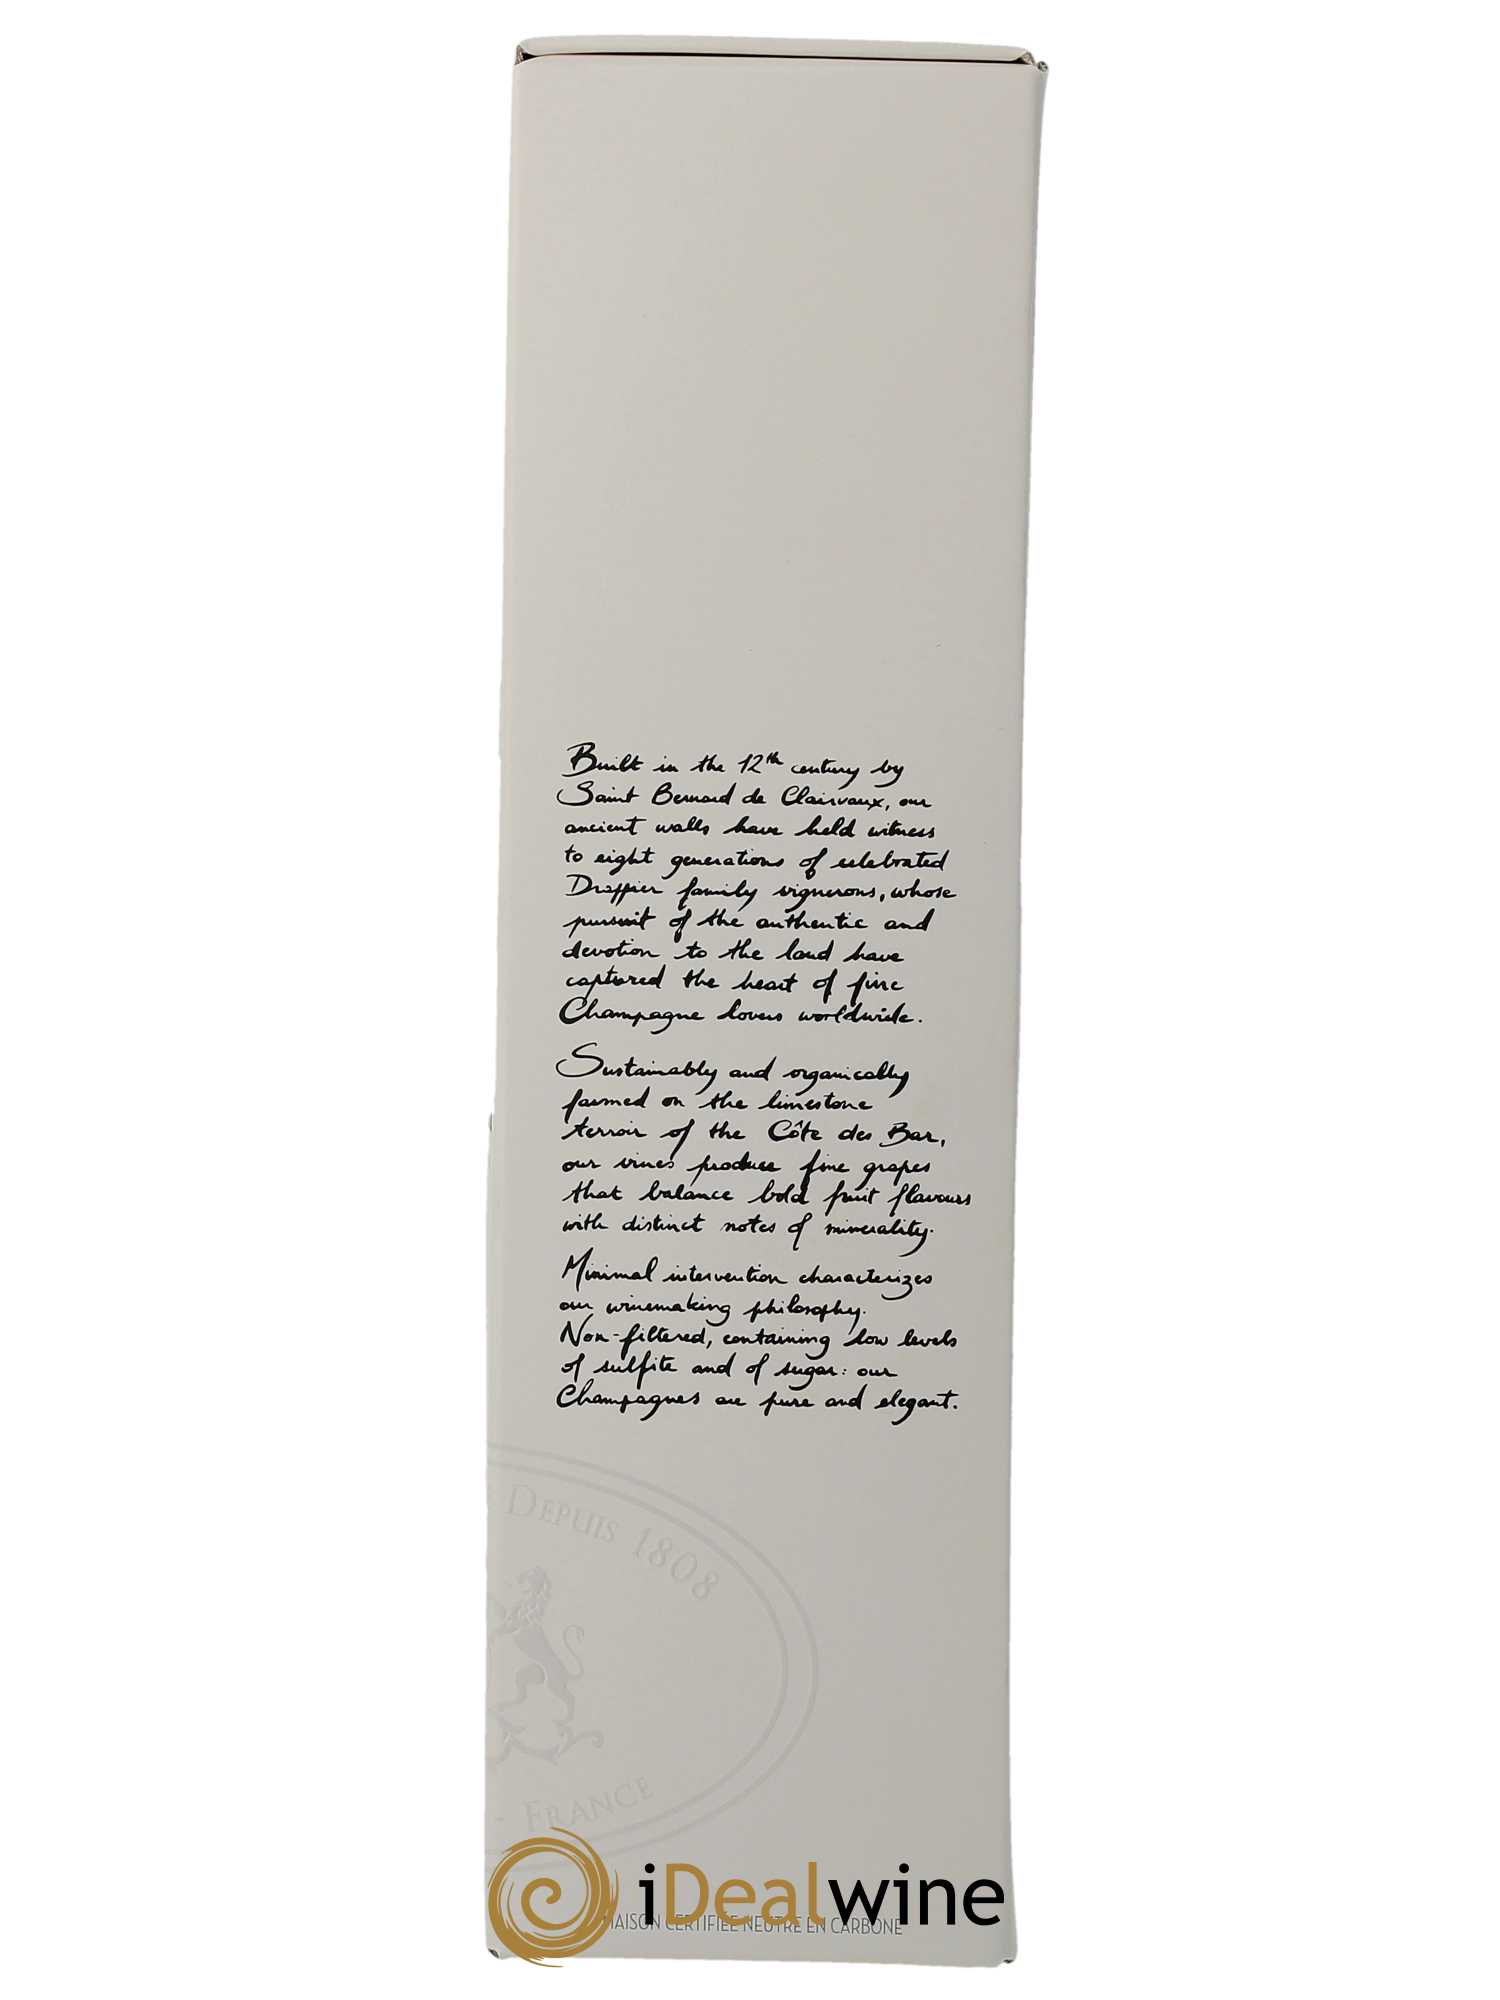 Built in the 12th century by
Saint Bernard de Clairvaux, our
ancient walls have held witness
to eight generations of celebrated
Drappier family vignerons, whose
pursuit of the authentic and
devotion to the land have
captured the heart of fine
Champagne lovers worldwide.
Sustainably and organically
farmed on the limestone
terroir of the Côte des Bar,
our vines produce fine grapes
that balance bold fruit flavours
with distinct notes of minerality.
Minimal intervention characterizes
our winemaking philosophy.
Non-filtered, containing low levels
of sulfite and of sugar: our
Champagnes are pure and elegant.
DEPUIS 1808
- FRANCE
iDealwine
MAISON CERTIFIÉE NEUTRE EN CARBONE